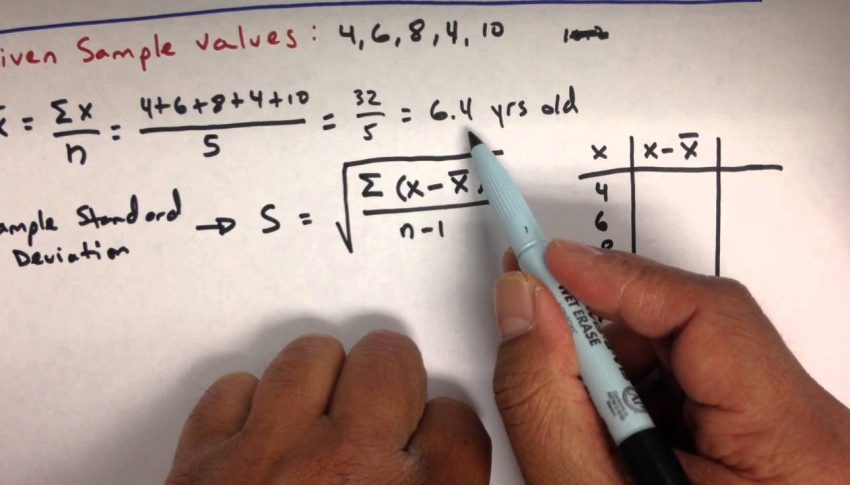 iven Sample values: 4, 6, 8, 4, 10
x̄ = Σx / n = 4+6+8+4+10 / 5 = 32 / 5 = 6.4 yrs old
ample Standard Deviation → S = √ Σ (x - x̄) / n-1
x | x - x̄
4
6
8
WET ERASE